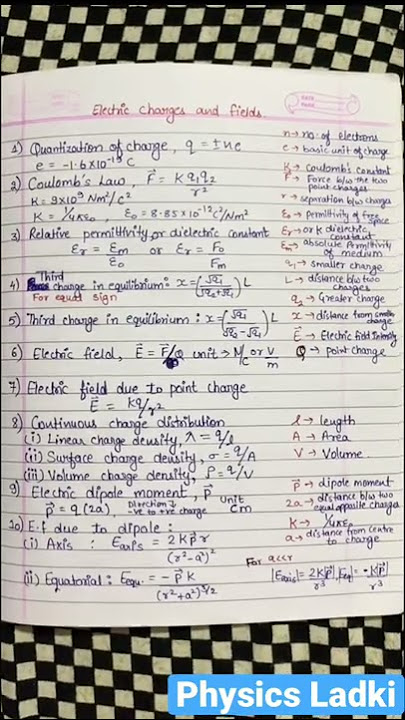 Electric Charges and fields.
1) Quantization of charge, q = ±ne
e = -1.6×10⁻¹⁹ C
2) Coulomb's Law, F⃗ = K q₁q₂/r²
K = 9×10⁹ Nm²/C²
K = 1/4πε₀ ε₀ = 8.85×10⁻¹² C²/Nm²
3) Relative permittivity or dielectric constant
εr = εm/ε₀ or εr = F₀/Fm
4) Third change in equilibrium: x = (√q₁/√q₂+√q₁) L
For equal sign
5) Third change in equilibrium: x = (√q₁/√q₂-√q₁) L
6) Electric field, E⃗ = F⃗/Q unit → N/C or V/m
7) Electric field due to point charge
E⃗ = kq/r²
8) Continuous charge distribution
(i) Linear charge density, λ = q/l
(ii) Surface charge density, σ = q/A
(iii) Volume charge density, ρ = q/V
9) Electric dipole moment, P⃗
P⃗ = q(2a) Direction ↓ -ve to +ve charge Unit Cm
10) E.f due to dipole:
(i) Axis: Eaxis = 2KP⃗r/(r²-a²)²
(ii) Equatorial: Eequ. = -P⃗K/(r²+a²)^3/2
n → no. of electrons
e → basic unit of charge
K → Coulomb's Constant
F → Force b/w the two
point charges
r → separation b/w charges
ε₀ → permittivity of free
space
εr → or k dielectric
constant
εm → absolute
of medium
q₁ → smaller charge
L → distance b/w two
charges
q₂ → Greater charge
x → distance from smaller
charge
E⃗ → Electric field Intensity
Q → point charge
l → length
A → Area
V → Volume
P⃗ → dipole moment
2a → distance b/w two
equal opposite charge
K → 1/4πε₀
a → distance from Centre
to charge
For a<<r
|Eaxis| = 2K|P⃗|/r³, |Eeq| = -K|P⃗|/r³
Physics Ladki